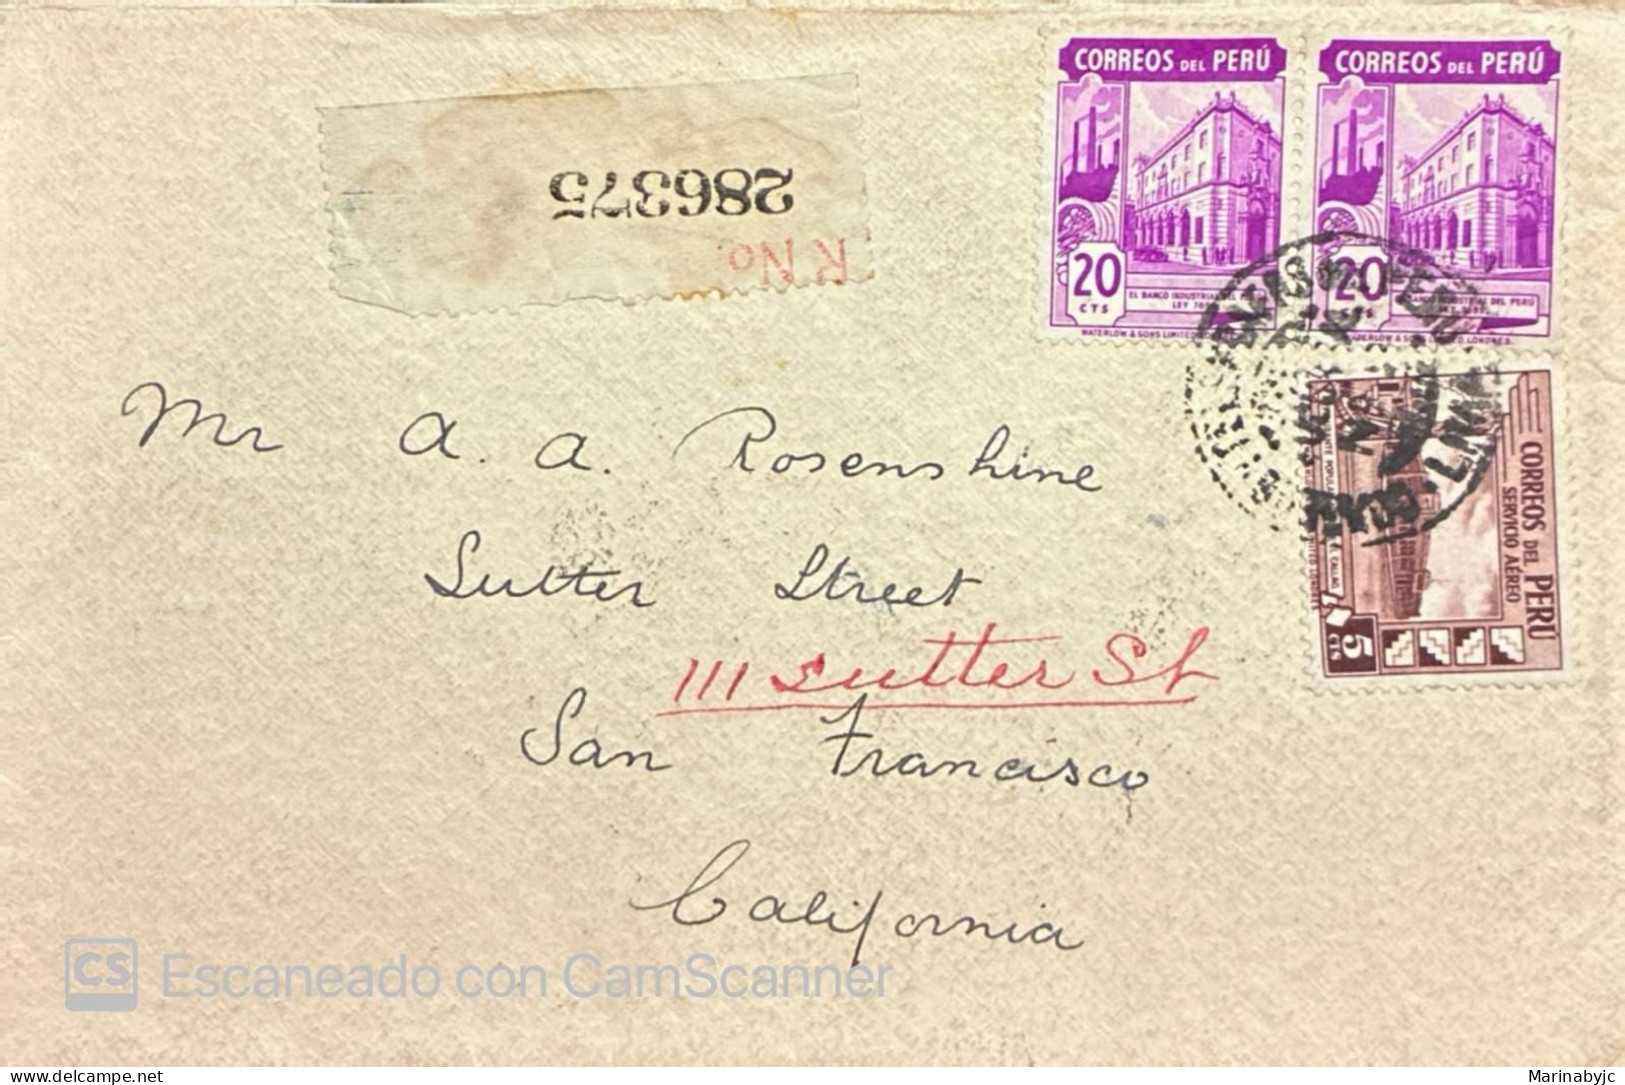 CORREOS DEL PERÚ
CORREOS DEL PERÚ
286375
R No.
20
CTS
EL BANCO INDUSTRIAL DEL
LEY
WATERLOW & SONS LIMITED
20
BANCO INDUSTRIAL DEL PERÚ
& SONS LIMITED, LONDRES.
LIMA
CORREOS DEL PERÚ
SERVICIO AÉREO
EL CALLAO
5
CTS
Mr A. A. Rosenshine
Sutter Street
111 Sutter St
San Francisco
California
CS Escaneado con CamScanner
delcampe.net
Marinabyjc